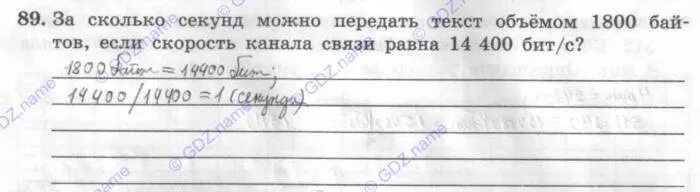 89. За сколько секунд можно передать текст объёмом 1800 бай-
тов, если скорость канала связи равна 14 400 бит/с?
1800 байт = 14400 бит;
14400/14400 = 1 (секунда)
© GDZ.name
© GDZ.name
© GDZ.name
© GDZ.name